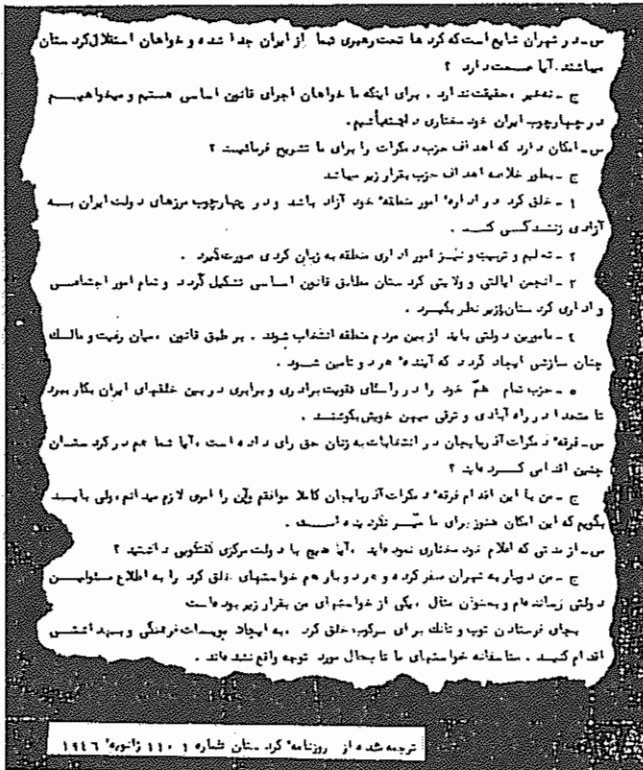 س ـ در تهران شایع است که کرد ها تحت رهبری شما از ایران جدا شده و خواهان استقلال کرد ستان
میباشند. آیا صحت دارد ؟
ج ـ نخیر ، حقیقت ندارد . برای اینکه ما خواهان اجرای قانون اساسی هستیم و میخواهیم
در چهارچوب ایران خود مختاری داشته باشیم.
س ـ امکان دارد که اهداف حزب دمکرات را برای ما تشریح فرمائید ؟
ج ـ بطور خلاصه اهداف حزب بقرار زیر میباشد
۱ ـ خلق کرد در ادارهٔ امور منطقه٬ خود آزاد باشد و در چهارچوب مرزهای دولت ایران به
آزادی زندگی کند .
۲ ـ تعلیم و تربیت و نیز امور اداری منطقه به زبان کردی صورت گیرد .
۳ ـ انجمن ایالتی و ولایتی کرد ستان مطابق قانون اساسی تشکیل گردد و تمام امور اجتماعی
و اداری کرد ستان را زیر نظر بگیرد .
٤ ـ مامورین دولتی باید از بین مردم منطقه انتخاب شوند . بر طبق قانون ، میان رعیت و مالک
چنان سازشی ایجاد گردد که آینده٬ هر دو تامین شود .
٥ ـ حزب تمام همّ خود را در راستای تقویت برادری و برابری در بین خلقهای ایران بکار ببرد
تا متحدا در راه آبادی و ترقی میهن خویش بکوشند .
س ـ فرقه٬ دمکرات آذربایجان در انتخابات به زنان حق رای داده است ، آیا شما هم در کرد ستان
چنین اقدامی کرده اید ؟
ج ـ من با این اقدام فرقه٬ دمکرات آذربایجان کاملا موافقم و آن را امری لازم میدانم ، ولی باید
بگویم که این امکان هنوز برای ما میّسر نگردیده است .
س ـ از مدتی که اعلام خود مختاری نموده اید ، آیا هیچ با دولت مرکزی گفتگویی داشتید ؟
ج ـ من دوبار به تهران سفر کرده و هر دو بار هم خواستهای خلق کرد را به اطلاع مسئولین
دولتی رسانده ام و بعنوان مثال ، یکی از خواستهای من بقرار زیر بوده است
بجای فرستادن توپ و تانک برای سرکوب خلق کرد ، به ایجاد موسسات فرهنگی و بهداشتی
اقدام کنید . متاسفانه خواستهای ما تا بحال مورد توجه واقع نشده اند .
ترجمه شده از روزنامه٬ کرد ستان شماره ۱ ۱۱۰ ژانویه٬ ۱۹٤٦